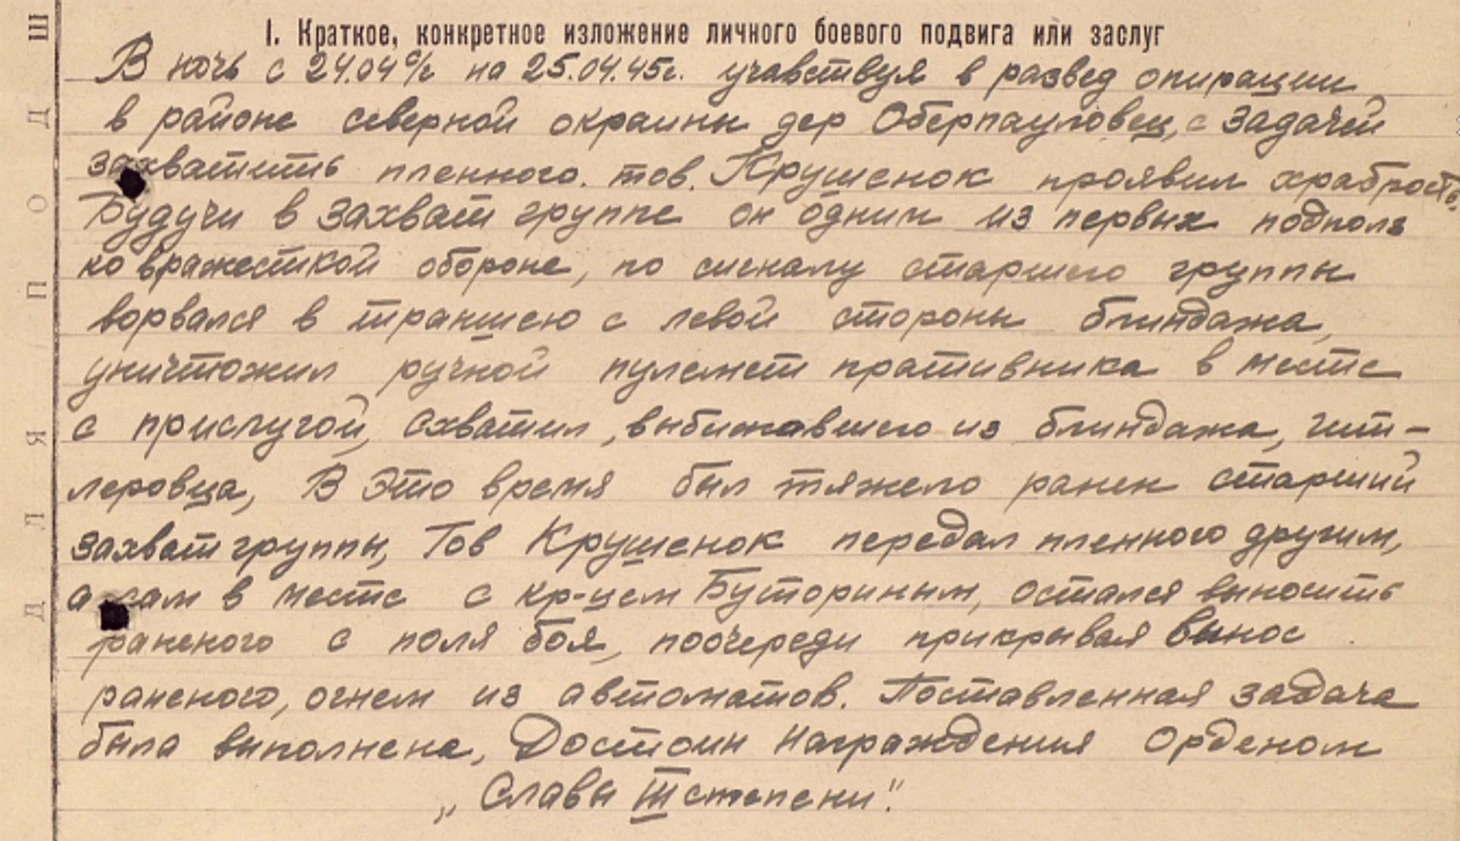 I. Краткое, конкретное изложение личного боевого подвига или заслуг
В ночь с 24.04 с/г на 25.04.45г. учавствуя в развед опирации
в районе северной окраины дер Оберпауловец, с задачей
захватить пленного. тов. Крушенок проявил храбрость.
Будучи в захват группе он одним из первых подполз
ко вражесткой обороне, по сигналу старшего группы
ворвался в траншею с левой стороны блиндажа,
уничтожил ручной пулемет пративника в месте
с прислугой, схватил, выбижавшего из блиндажа, гит-
леровца, В это время был тяжело ранен старший
захват группы, Тов Крушенок передал пленного другим,
а сам в месте с кр-цем Буториным, остался выносить
раненого с поля боя, поочереди прикрывая вынос
раненого, огнем из автоматов. Поставленная задача
была выполнена, Достоин награждения Орденом
„Славы III степени".
ДЛЯ ПОДШ